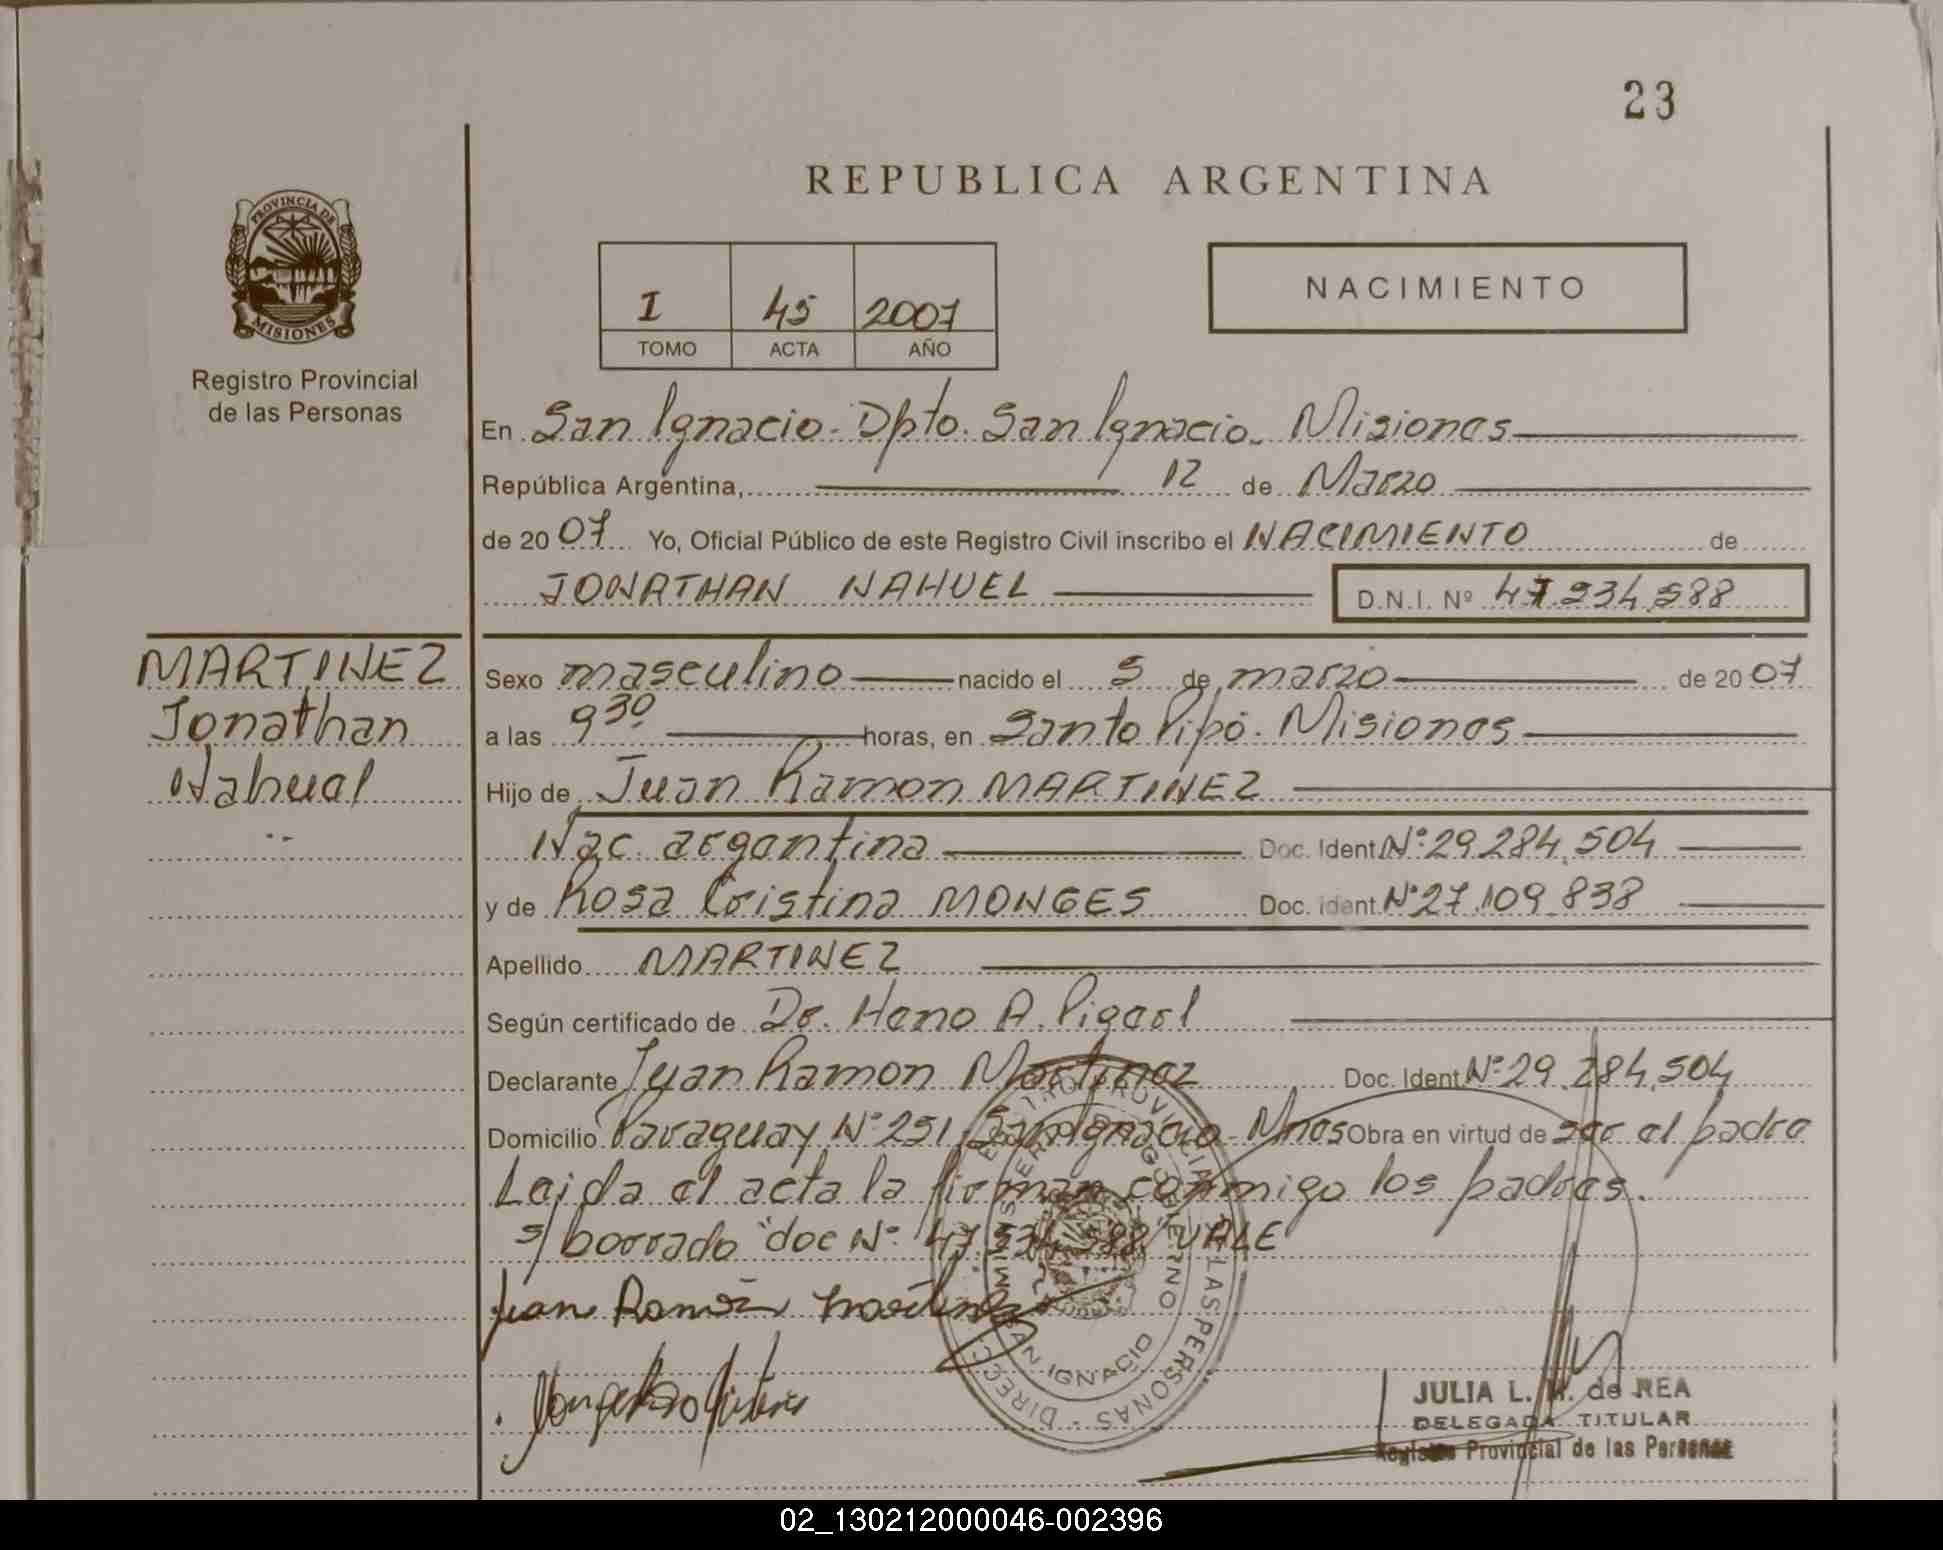 23
REPUBLICA ARGENTINA
PROVINCIA DE
MISIONES
Registro Provincial
de las Personas
I 45 2007
TOMO ACTA AÑO
NACIMIENTO
En San Ignacio - Dpto. San Ignacio - Misiones
República Argentina, 12 de Marzo
de 20 07 Yo, Oficial Público de este Registro Civil inscribo el NACIMIENTO de
JONATHAN NAHUEL D.N.I. Nº
MARTINEZ
Jonathan
Nahuel
Sexo masculino nacido el 5 de marzo de 20 07
a las 9 30 horas, en Santo Pipó - Misiones
Hijo de Juan Ramon MARTINEZ
Nac. argentina Doc. Ident. Nº 29.284.504
y de Rosa Cristina MONGES Doc. ident. Nº 27.109.838
Apellido MARTINEZ
Según certificado de Dr. A.
Declarante Juan Ramon Martinez Doc. Ident. Nº 29.284.504
Domicilio Paraguay Nº 251 San Ignacio - Mnes Obra en virtud de ser el padre
Leida el acta la firman conmigo los padres.
s/ borrado "doc Nº VALE
Juan Ramón Martinez
SAN IGNACIO
JULIA L. M. de REA
DELEGADA TITULAR
Registro Provincial de las Personas
02_130212000046-002396